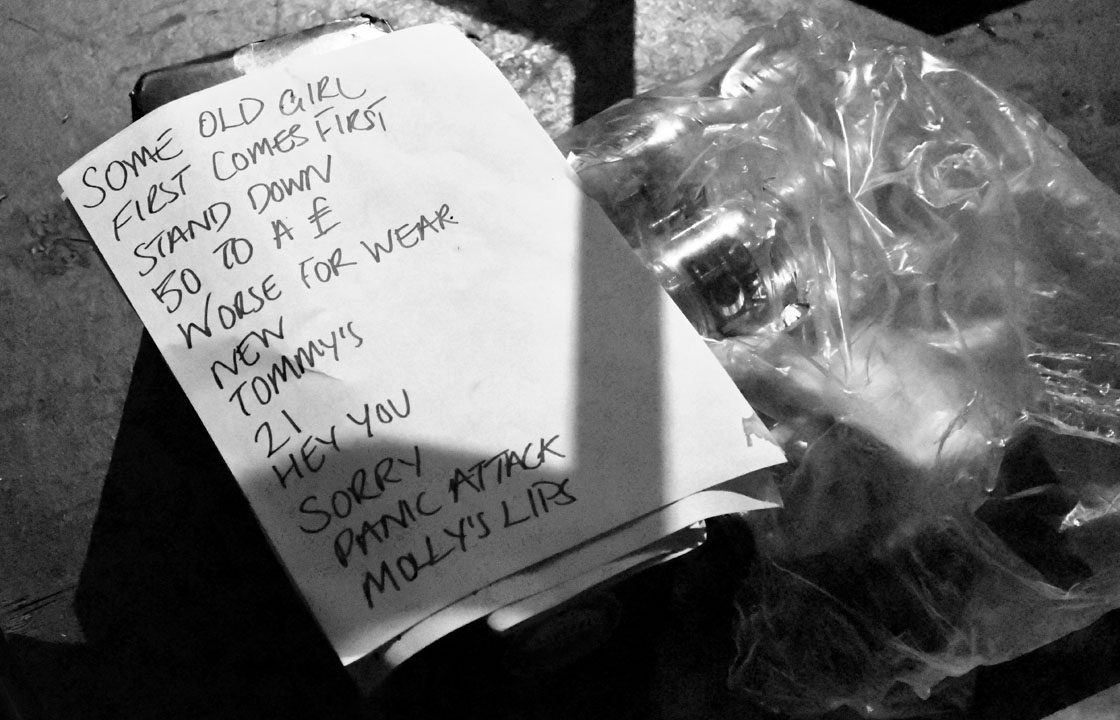 SOME OLD GIRL
FIRST COMES FIRST
STAND DOWN
50 TO A £
WORSE FOR WEAR.
NEW
TOMMY'S
21
HEY YOU
SORRY
PANIC ATTACK
MOLLY'S LIPS